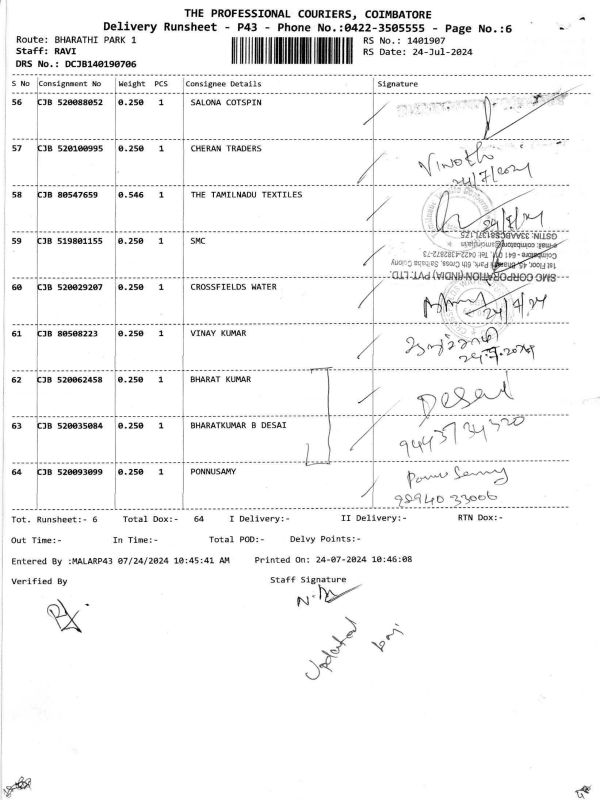 THE PROFESSIONAL COURIERS, COIMBATORE
Delivery Runsheet - P43 - Phone No.:0422-3505555 - Page No.:6
Route: BHARATHI PARK 1
Staff: RAVI
DRS No.: DCJB140190706
RS No.: 1401907
RS Date: 24-Jul-2024
S No Consignment No Weight PCS Consignee Details Signature
56 CJB 520088052 0.250 1 SALONA COTSPIN
57 CJB 520100995 0.250 1 CHERAN TRADERS
Vinoth
24/7/2024
58 CJB 80547659 0.546 1 THE TAMILNADU TEXTILES
59 CJB 519801155 0.250 1 SMC
SMC CORPORATION (INDIA) PVT. LTD.
1st Floor, 45, Bharathi Park, 6th Cross, Saibaba Colony
Coimbatore - 641 011. Tel: 0422-4382872-73
60 CJB 520029207 0.250 1 CROSSFIELDS WATER
24/7/24
61 CJB 80508223 0.250 1 VINAY KUMAR
62 CJB 520062458 0.250 1 BHARAT KUMAR
Desai
63 CJB 520035084 0.250 1 BHARATKUMAR B DESAI
9443734320
64 CJB 520093099 0.250 1 PONNUSAMY
Ponnusamy
98940 33006
Tot. Runsheet:- 6 Total Dox:- 64 I Delivery:- II Delivery:- RTN Dox:-
Out Time:- In Time:- Total POD:- Delvy Points:-
Entered By :MALARP43 07/24/2024 10:45:41 AM Printed On: 24-07-2024 10:46:08
Verified By Staff Signature
Updated